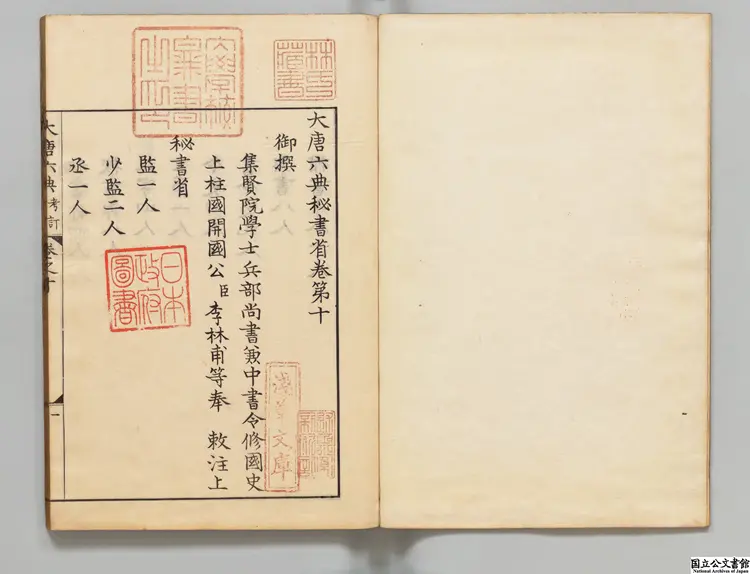 大唐六典秘書省卷第十
御撰
集賢院學士兵部尚書兼中書令修國史
上柱國開國公臣李林甫等奉 敕注上
秘書省
監一人
少監二人
丞一人
大唐六典考訂 卷之十
一
林氏藏書
日本政府圖書
淺草文庫
国立公文書館
National Archives of Japan